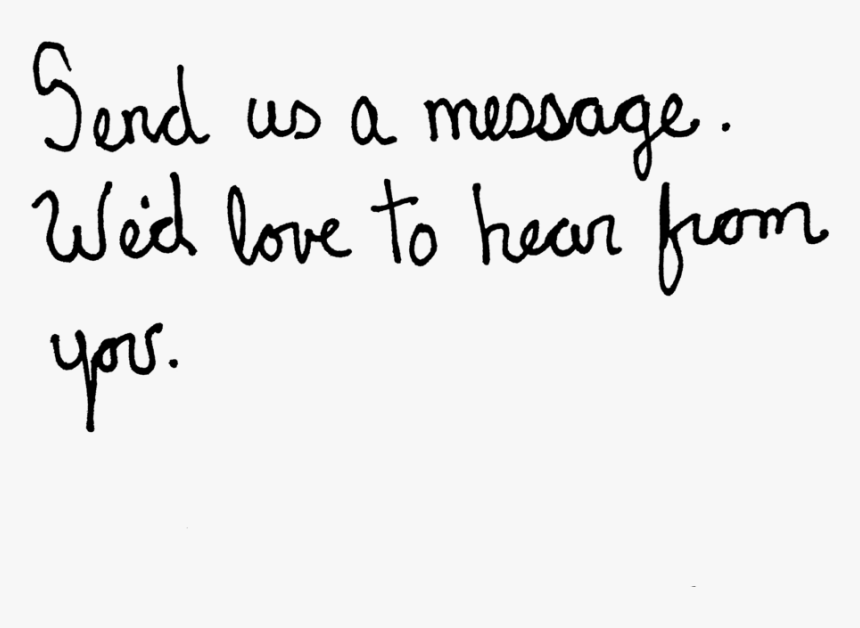 Send us a message.
We'd love to hear from
you.